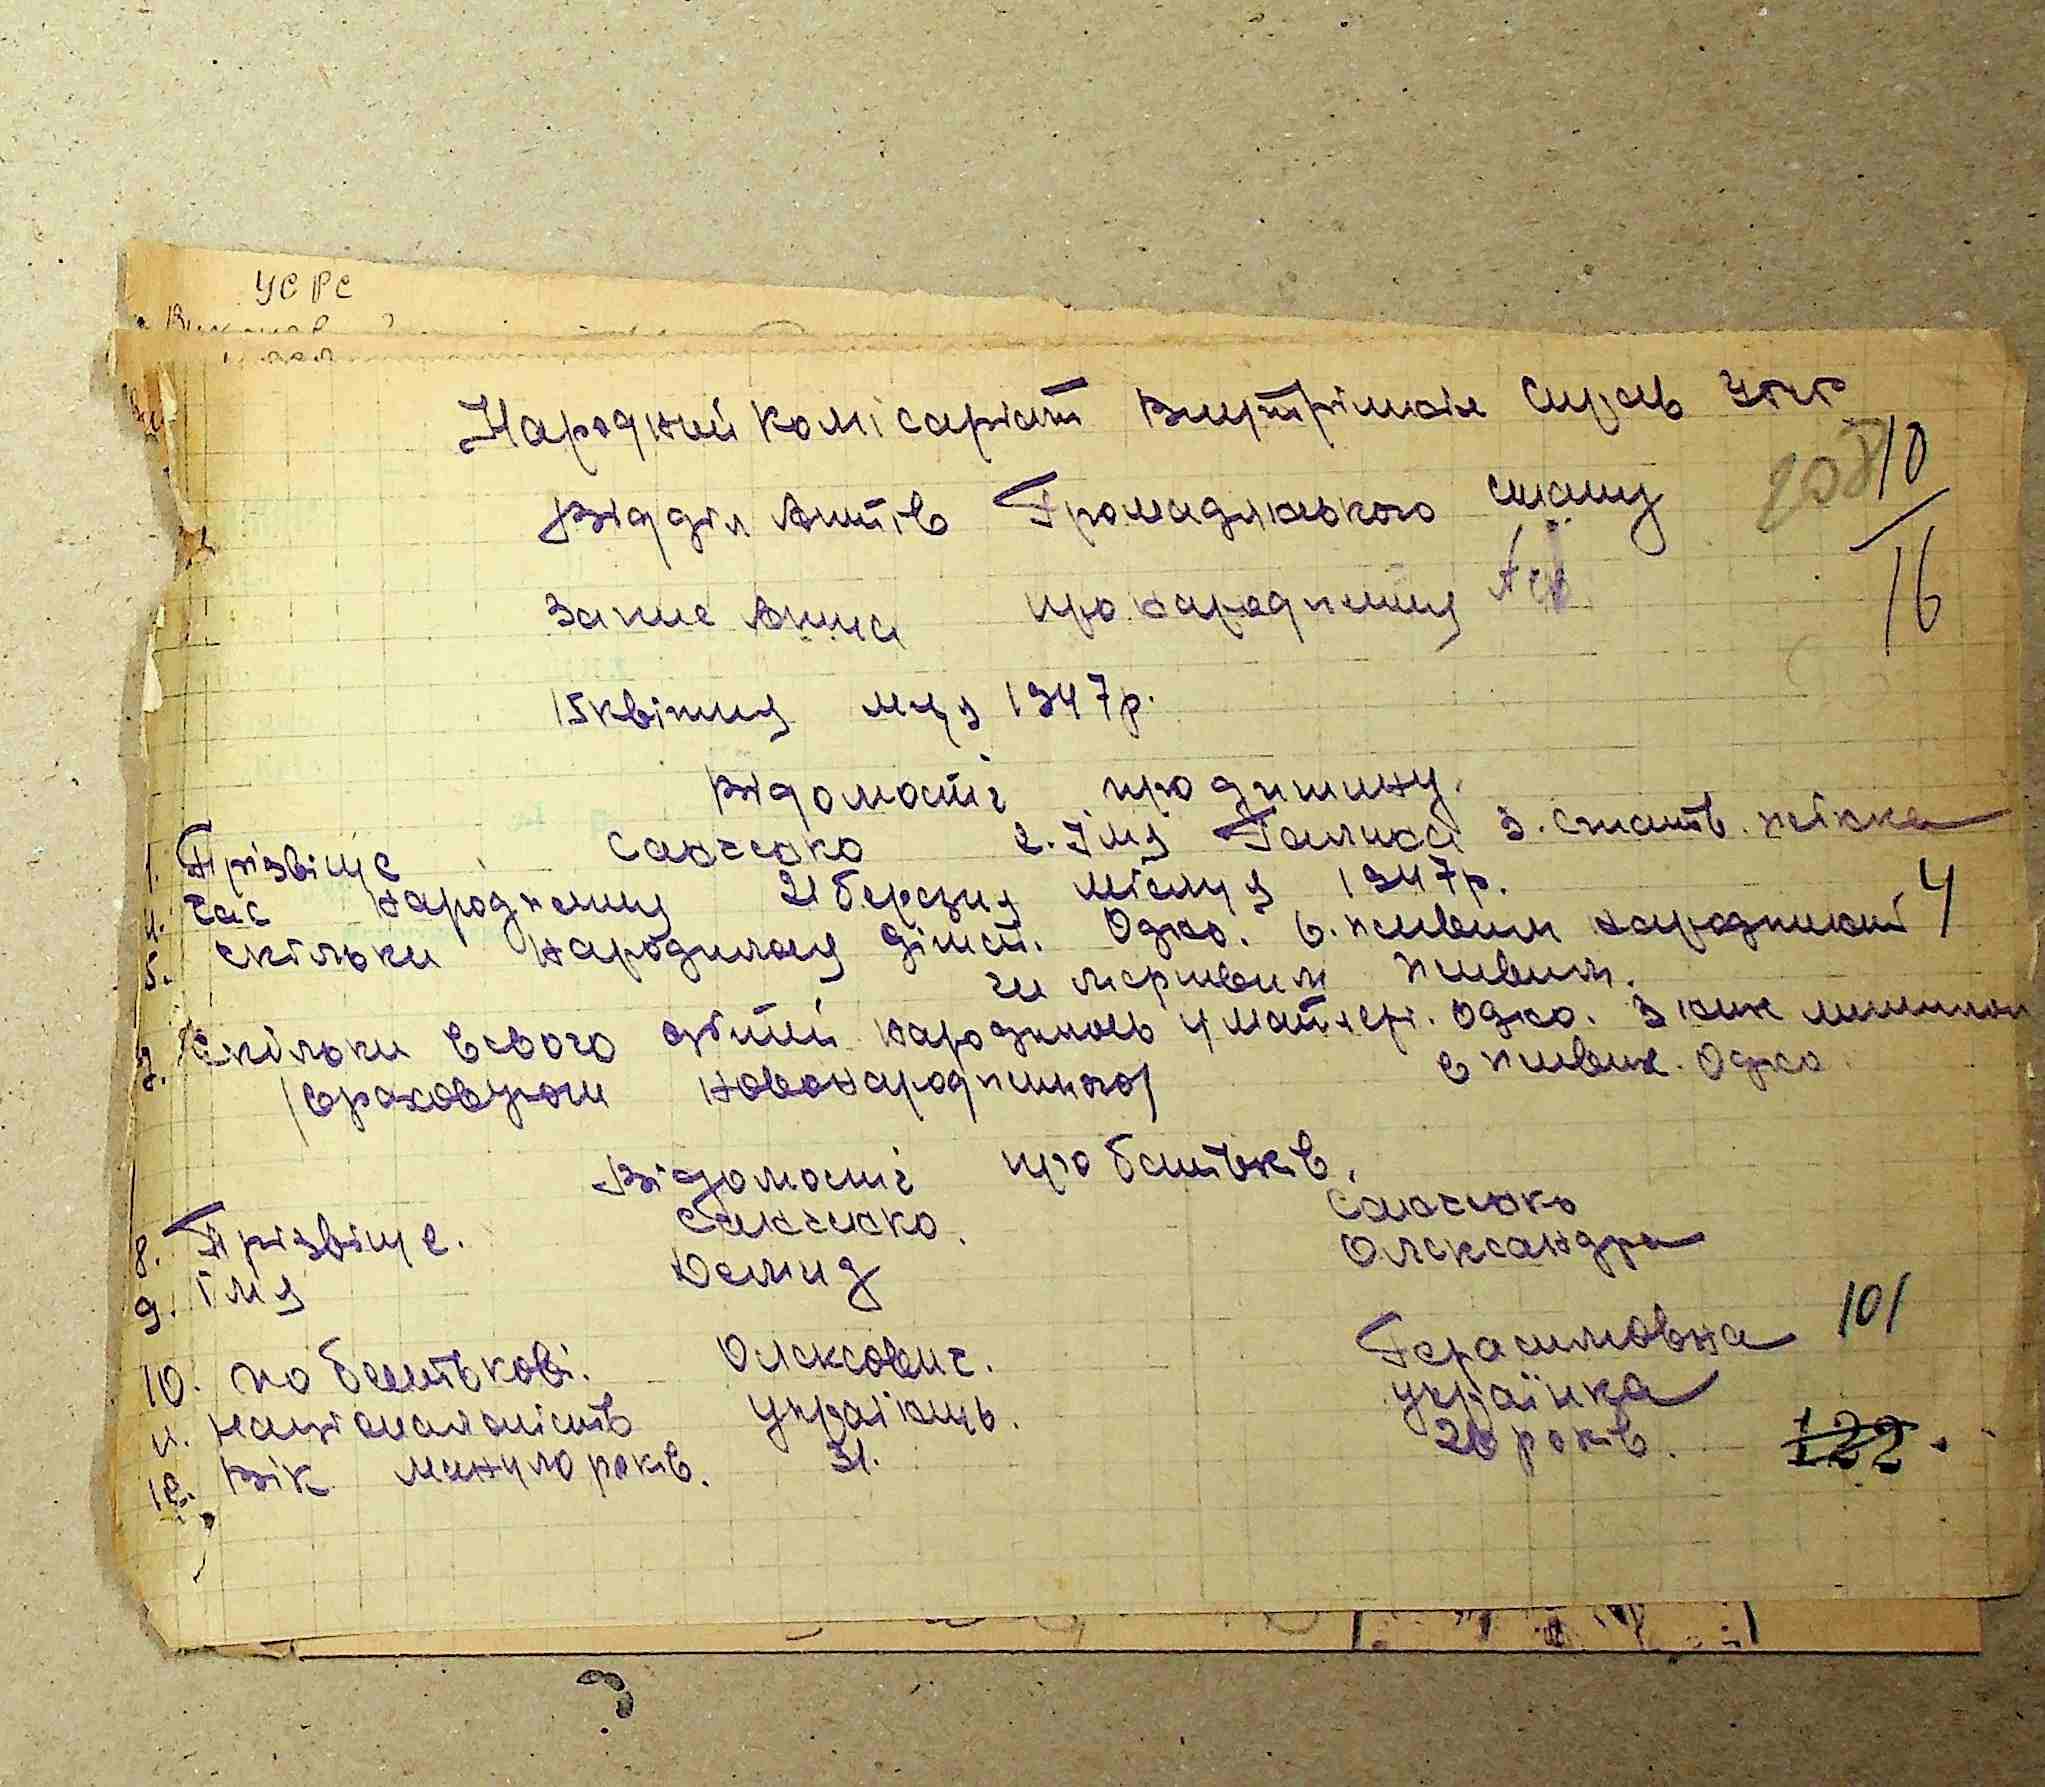 УСРС
Народний комісаріат внутрішніх справ УРСР
Відділ Актів Громадянського стану
10
16
Запис Акта про народження
15 квітня м-ця 1947 р.
Відомості про дитину.
1. Прізвище Санченко 2. Імя Галина 3. стать. жінка
4. час народження 21 березня місяця 1947 р. 4
5. скільки народилося дітей. Одно. 6. живим народжений
чи мертвим живим.
7. Скільки всього дітей народилось у матері. Одно. З них лишилось
/враховуючи новонародженого/ в живих. Одно.
Відомості про батьків.
8. Прізвище. Санченко. Санченко
9. Імя Демид Олександра
10. по батькові. Олексович. Герасимовна 101
11. національність українць. українка
12. Вік минуло років. 31. 26 років. 122.